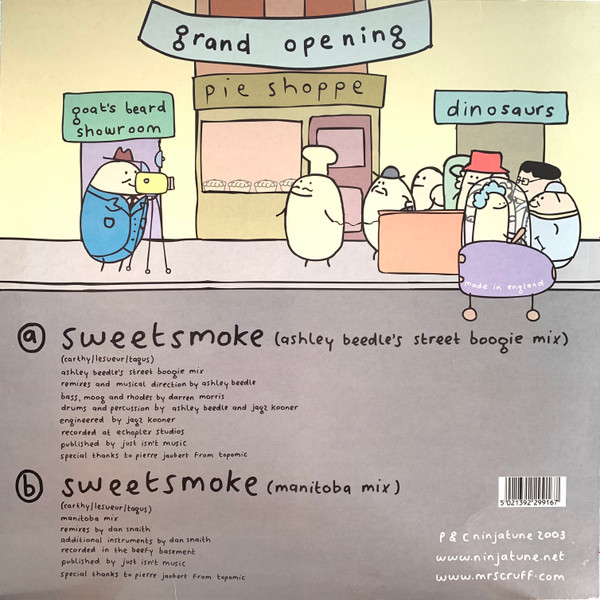 grand opening
pie shoppe
goat's beard
showroom
dinosaurs
made in england
a sweetsmoke (ashley beedle's street boogie mix)
(carthy/lesueur/tagus)
ashley beedle's street boogie mix
remixes and musical direction by ashley beedle
bass, moog and rhodes by darren morris
drums and percussion by ashley beedle and jagz kooner
engineered by jagz kooner
recorded at echoplex studios
published by just isn't music
special thanks to pierre jaubert from topomic
b sweetsmoke (manitoba mix)
(carthy/lesueur/tagus)
manitoba mix
remixes by dan snaith
additional instruments by dan snaith
recorded in the beefy basement
published by just isn't music
special thanks to pierre jaubert from topomic
5 021392 299167
P & C ninjatune 2003
www.ninjatune.net
www.mrscruff.com